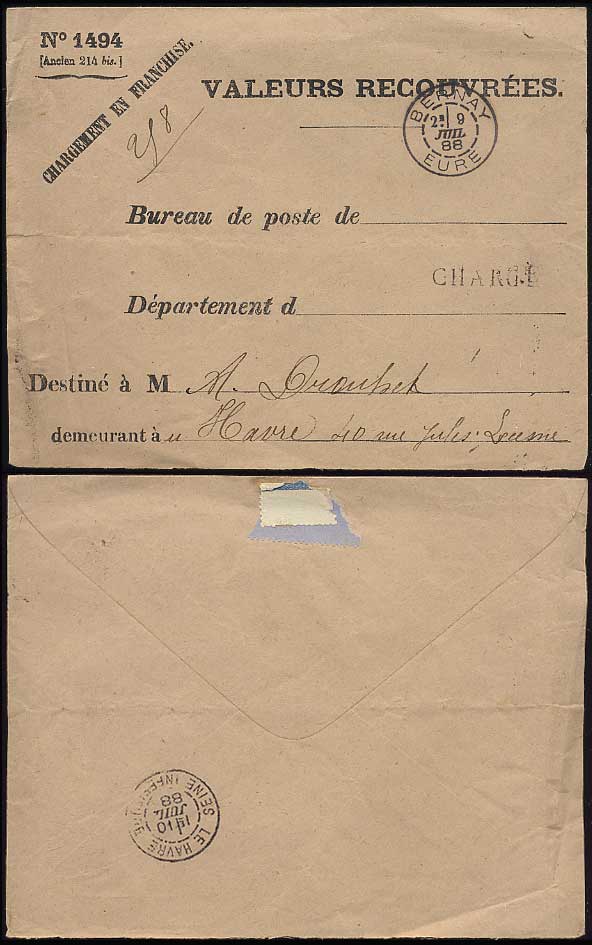 Nº 1494
[Ancien 214 bis.]
CHARGEMENT EN FRANCHISE.
VALEURS RECOUVRÉES.
BERNAY
2ᴱ 9
JUIL
88
EURE
Bureau de poste de
CHARGÉ
Département d
Destiné à M A.
demeurant à u Havre 40 rue Jules
LE HAVRE SEINE INFERIEURE
10
JUIL
88